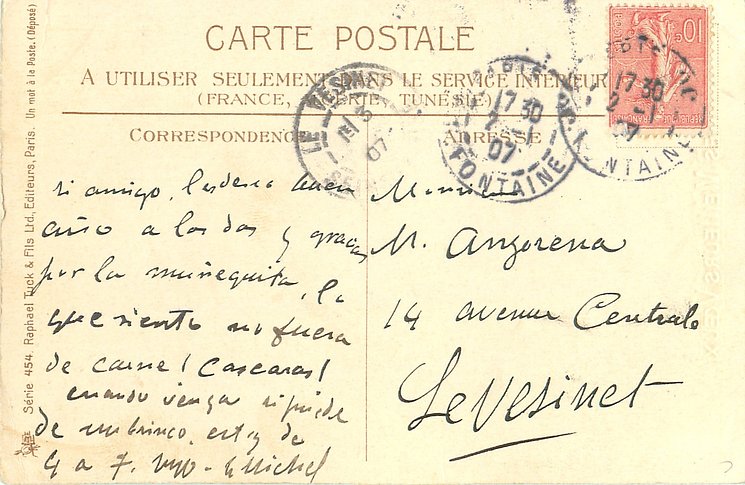 CARTE POSTALE
A UTILISER SEULEMENT DANS LE SERVICE INTERIEUR
(FRANCE, ALGÉRIE, TUNÉSIE)
CORRESPONDENCE
ADRESSE
si amigo, les deseo buen
año a los dos y gracias
por la muñequita, la
que siento no fuera
de carne! Cascaras!
cuando venga si puede
de un brinco, estoy de
4 a 7.
Monsieur
M. Anzorena
14 avenue Centrale
Le Vesinet
LE VESINET
3
07
17 30
2 -1
07
FONTAINE
17 30
2 -1
07
FONTAINE
10
RÉPUBLIQUE FRANÇAISE
Série 454. Raphael Tuck & Fils Ltd., Editeurs, Paris. Un mot à la Poste. (Déposé)